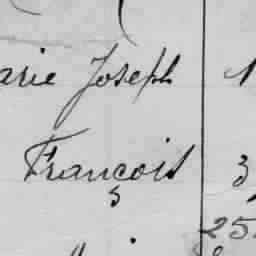 arie Joseph 1
François 3
25